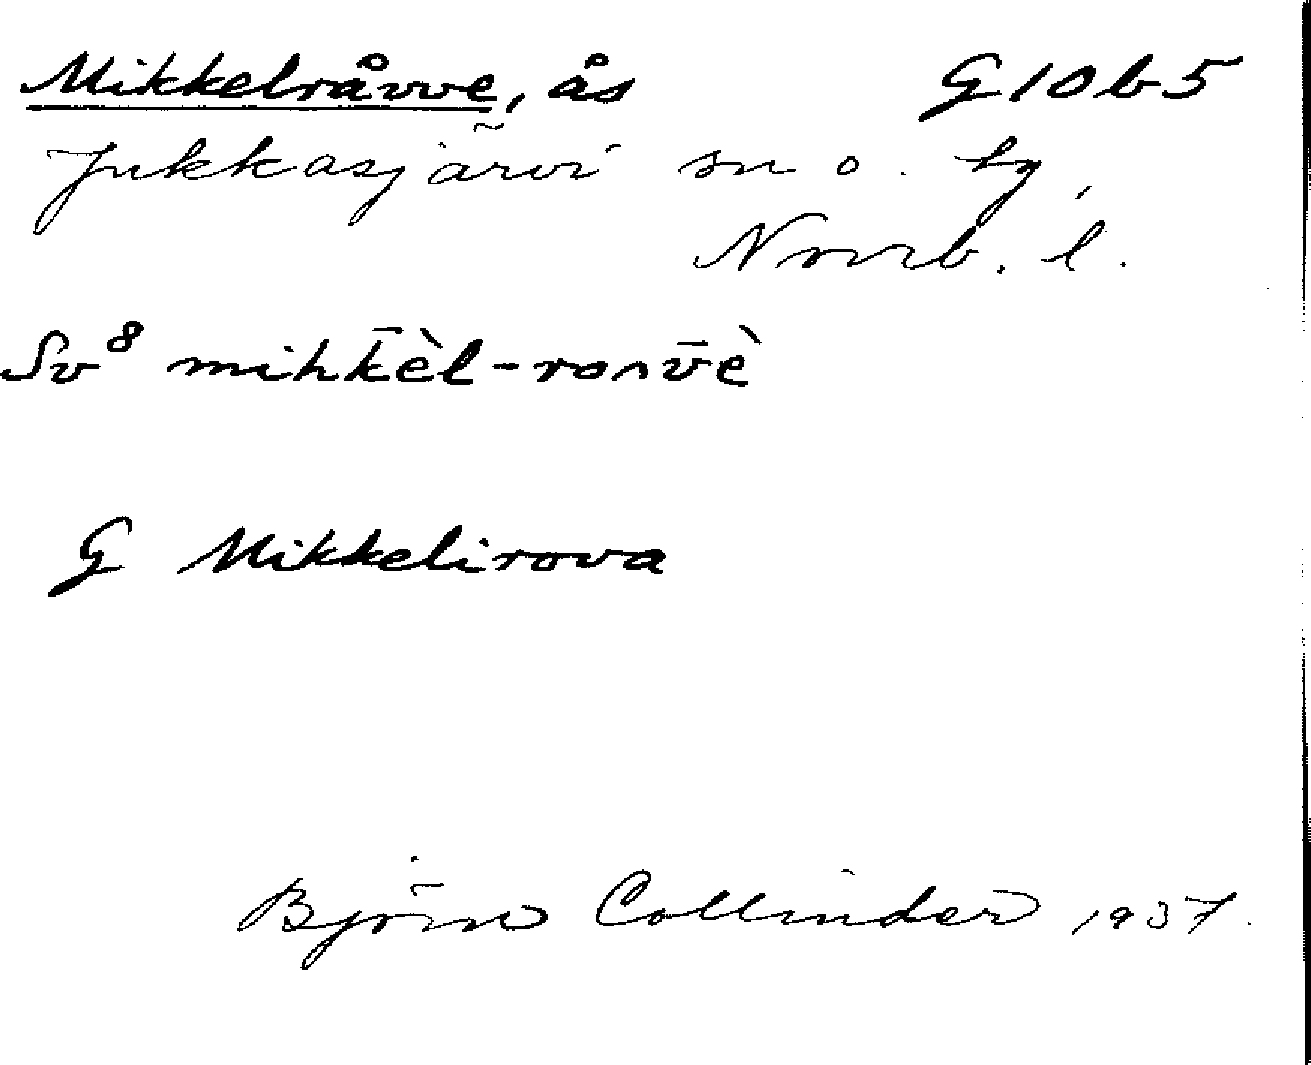 Mikkelråvve, ås G10b5
Jukkasjärvi sn o. tg,
Norrb. l.
Sv⁸ mihk̄èl-roʌv̄è
G Mikkelirova
Björn Collinder 1937.